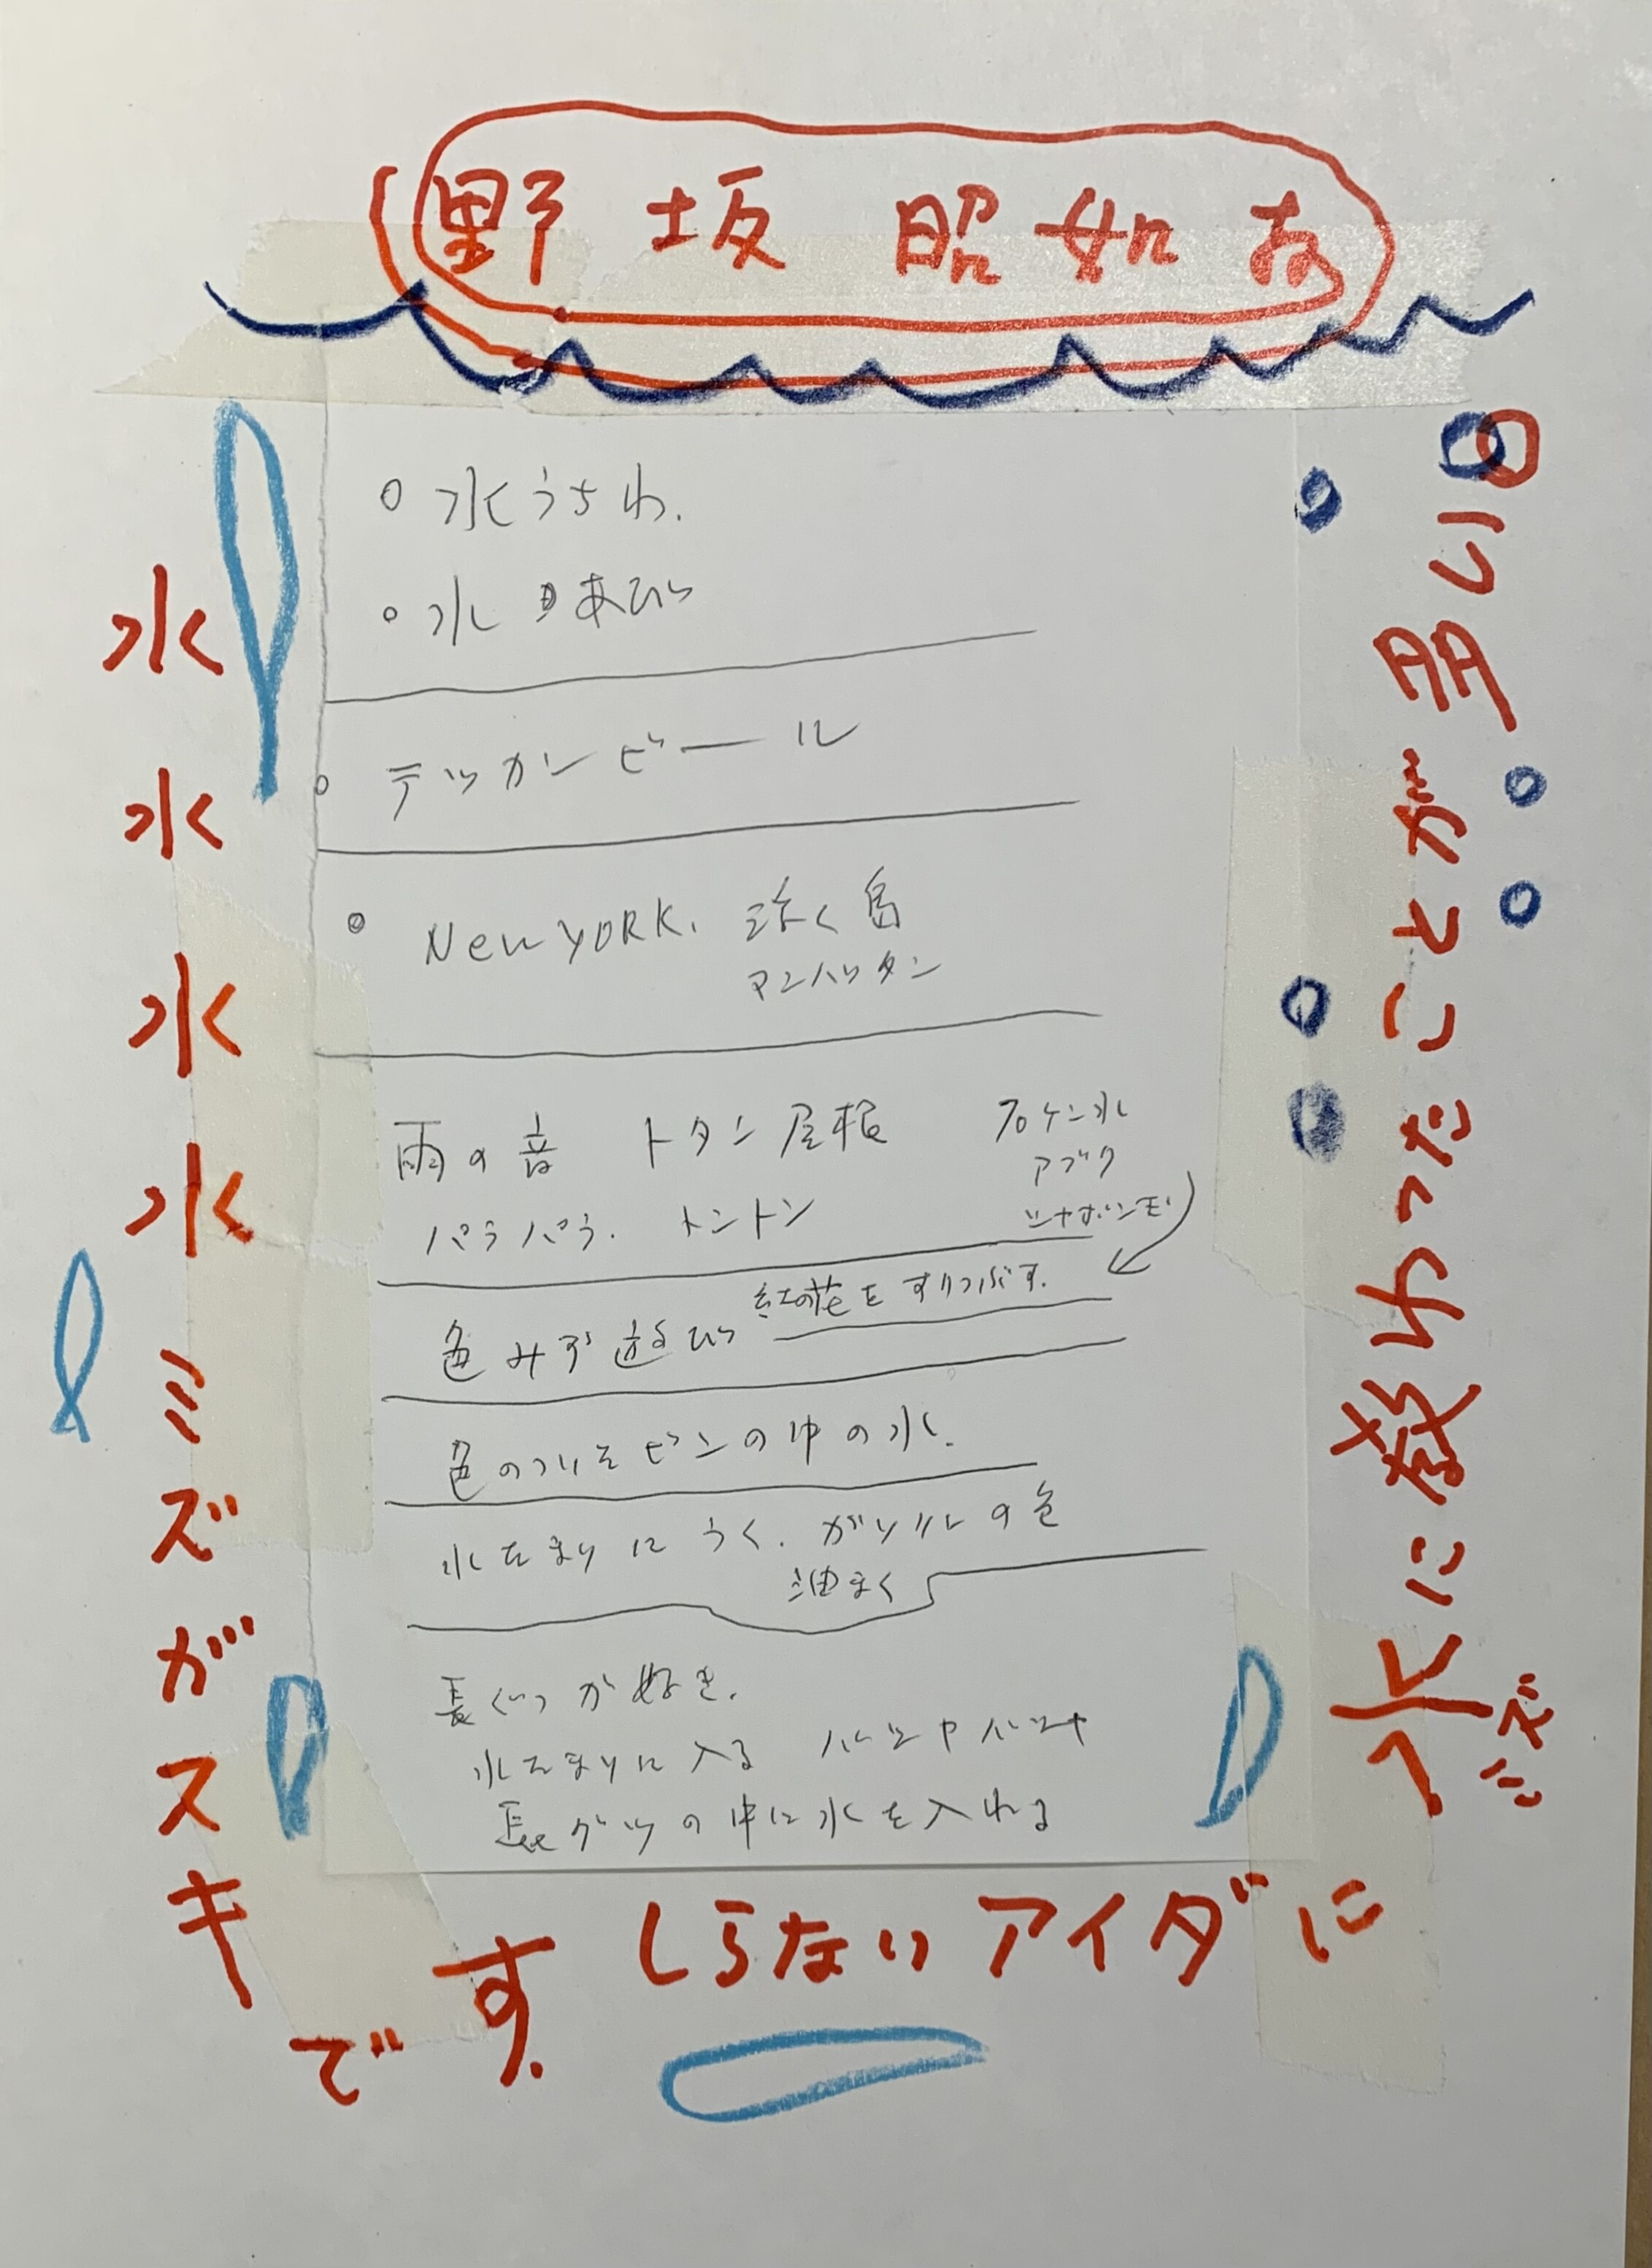 野坂昭如
水うちわ.
水
テッカンビール
New YORK. 泳ぐ島
マンハッタン
雨の音 トタン屋根
パラパラ. トントン
石ケン水
アブク
シャボン玉
色みず遊び 紅花をすりつぶす.
色のついたビンの中の水.
水たまりにうく. ガソリンの色
油まく
長ぐつが好き.
水たまりに入る バシャバシャ
長グツの中に水を入れる
水
水
水
水
ミズガスキ
です.
しらないアイダに
水に教わったことが多い
ミズ